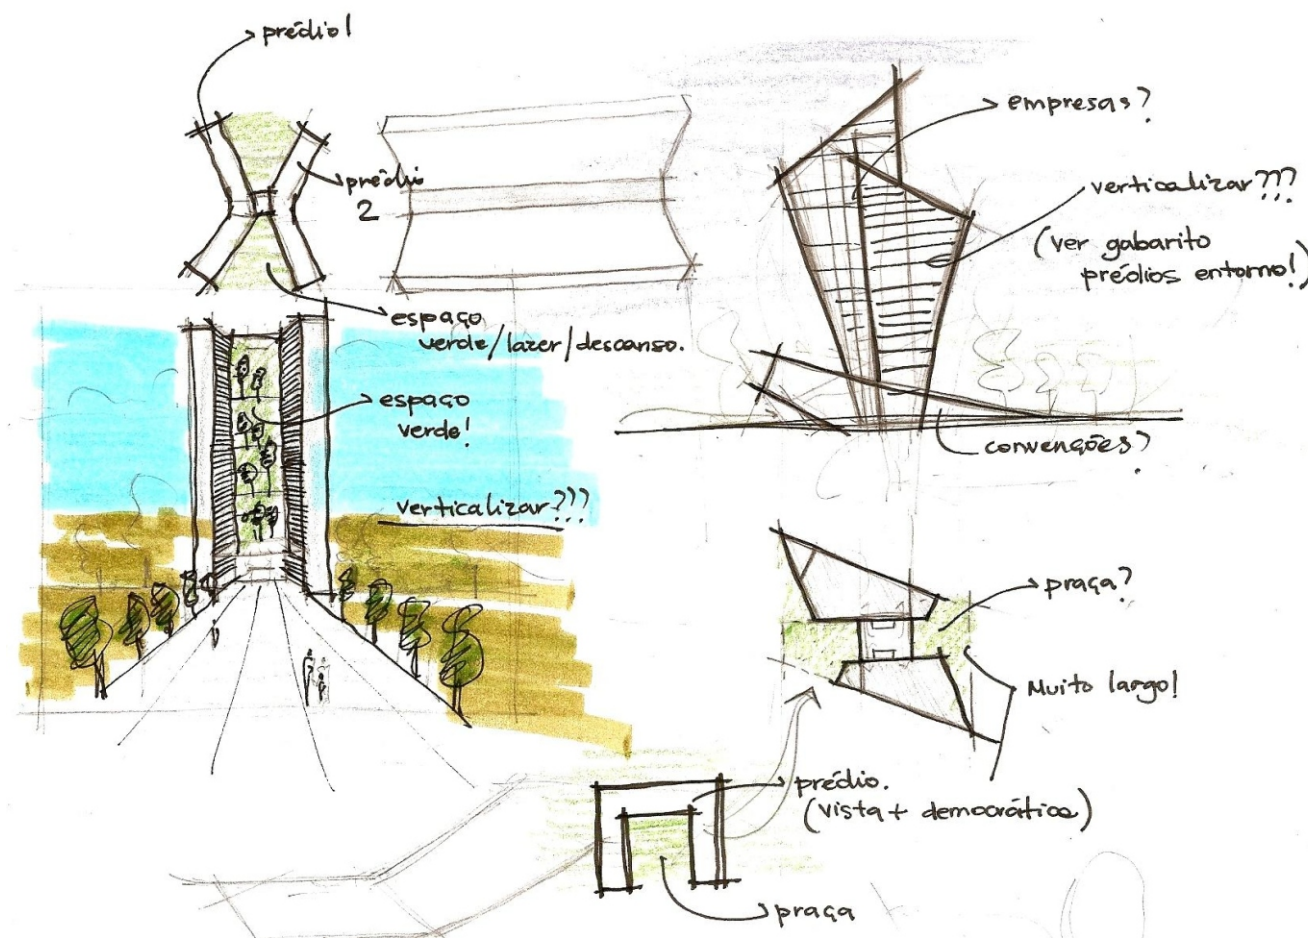 prédio 1
prédio
2
espaço
verde/lazer/descanso.
espaço
verde!
verticalizar???
empresas?
verticalizar???
(ver gabarito
prédios entorno!)
convenções?
praça?
Muito largo!
prédio.
(vista + democrática)
praça